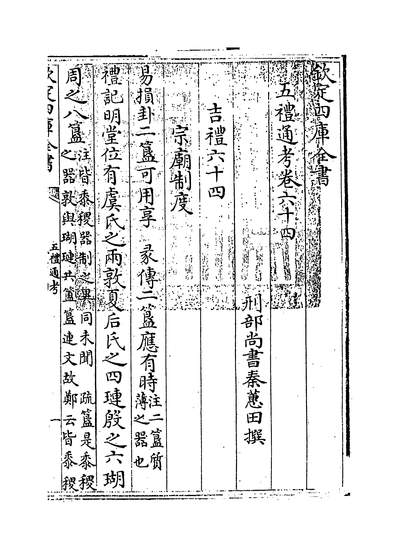 欽定四庫全書
五禮通考卷六十四
刑部尚書秦蕙田撰
吉禮六十四
宗廟制度
易損卦二簋可用享 彖傳二簋應有時注二簋質薄之器也
禮記明堂位有虞氏之兩敦夏后氏之四璉殷之六瑚
周之八簋注皆黍稷器制之異同未聞 疏簋是黍稷之器敦與瑚璉共簋簠連文故鄭云皆黍稷
欽定四庫全書
五禮通考
一